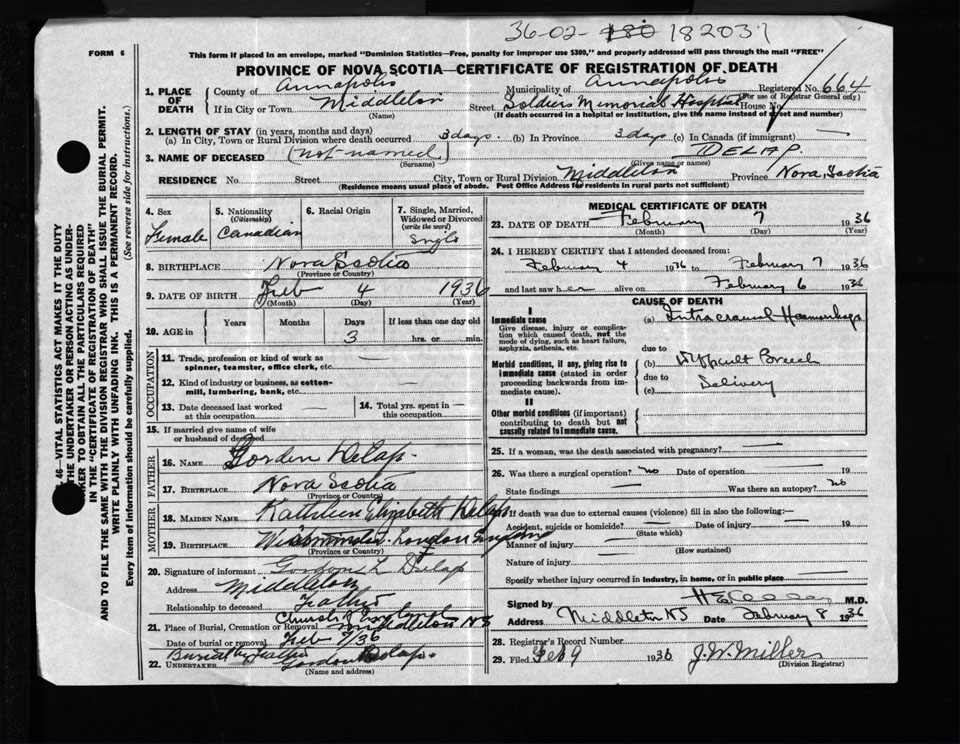 36-02- 180 182031
FORM 6
This form if placed in an envelope, marked "Dominion Statistics—Free, penalty for improper use $300," and properly addressed will pass through the mail "FREE"
PROVINCE OF NOVA SCOTIA—CERTIFICATE OF REGISTRATION OF DEATH
1. PLACE OF DEATH County of Annapolis Municipality of Annapolis Registered No. 664
(For use of Registrar General only)
If in City or Town Middleton Street Soldiers Memorial Hospital House No.
(Name) (If death occurred in a hospital or institution, give the name instead of street and number)
2. LENGTH OF STAY (in years, months and days)
(a) In City, Town or Rural Division where death occurred 3 days. (b) In Province 3 days (c) In Canada (if immigrant) —
3. NAME OF DECEASED (not named) DELAP.
(Surname) (Given name or names)
RESIDENCE No. Street City, Town or Rural Division Middleton Province Nova Scotia
(Residence means usual place of abode. Post Office Address for residents in rural parts not sufficient)
4. Sex Female
5. Nationality (Citizenship) Canadian
6. Racial Origin
7. Single, Married, Widowed or Divorced (write the word) single
8. BIRTHPLACE Nova Scotia
(Province or Country)
9. DATE OF BIRTH Feb 4 1936
(Month) (Day) (Year)
10. AGE in Years Months Days If less than one day old
3 hrs. or min.
OCCUPATION
11. Trade, profession or kind of work as spinner, teamster, office clerk, etc. —
12. Kind of industry or business, as cotton-mill, lumbering, bank, etc. —
13. Date deceased last worked at this occupation —
14. Total yrs. spent in this occupation —
15. If married give name of wife or husband of deceased
FATHER
16. NAME Gorden Delap.
17. BIRTHPLACE Nova Scotia
(Province or Country)
MOTHER
18. MAIDEN NAME Kathleen Elizabeth Delap
19. BIRTHPLACE London England
(Province or Country)
20. Signature of informant Gordon L Delap
Address Middleton
Relationship to deceased Father
21. Place of Burial, Cremation or Removal Church of England Middleton NS
Date of burial or removal Feb 7/36
Burial by Father
22. UNDERTAKER Gordon Delap.
(Name and address)
MEDICAL CERTIFICATE OF DEATH
23. DATE OF DEATH February 7 1936
(Month) (Day) (Year)
24. I HEREBY CERTIFY that I attended deceased from:
February 4 1936 to February 7 1936
and last saw her alive on February 6 1936
CAUSE OF DEATH
I
Immediate cause (a) Intracranial Haemorrhage
Give disease, injury or complication which caused death, not the mode of dying, such as heart failure, asphyxia, asthenia, etc.
due to
Morbid conditions, if any, giving rise to immediate cause (stated in order proceeding backwards from immediate cause). (b) Difficult Breech
due to
(c) Delivery
II
Other morbid conditions (if important) contributing to death but not causally related to immediate cause.
25. If a woman, was the death associated with pregnancy? —
26. Was there a surgical operation? no Date of operation — 19
State findings — Was there an autopsy? no
27. If death was due to external causes (violence) fill in also the following:—
Accident, suicide or homicide? — Date of injury — 19
(State which)
Manner of injury —
(How sustained)
Nature of injury —
Specify whether injury occurred in industry, in home, or in public place —
Signed by M.D.
Address Middleton NS Date February 8 1936
28. Registrar's Record Number
29. Filed Feb 9 1936 J. W. Miller
(Division Registrar)
46—VITAL STATISTICS ACT MAKES IT THE DUTY
THE UNDERTAKER OR PERSON ACTING AS UNDER-
KER TO OBTAIN ALL THE PARTICULARS REQUIRED
IN THE "CERTIFICATE OF REGISTRATION OF DEATH"
AND TO FILE THE SAME WITH THE DIVISION REGISTRAR WHO SHALL ISSUE THE BURIAL PERMIT.
WRITE PLAINLY WITH UNFADING INK. THIS IS A PERMANENT RECORD.
Every item of information should be carefully supplied. (See reverse side for instructions.)